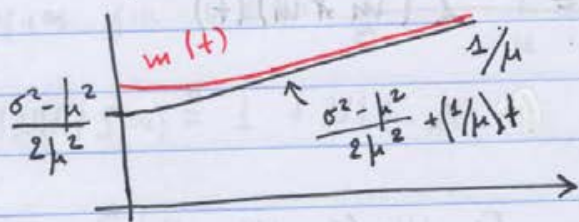 m (t)
1/μ
σ² - μ²
2μ²
σ² - μ²
2μ²
+ (1/μ) t